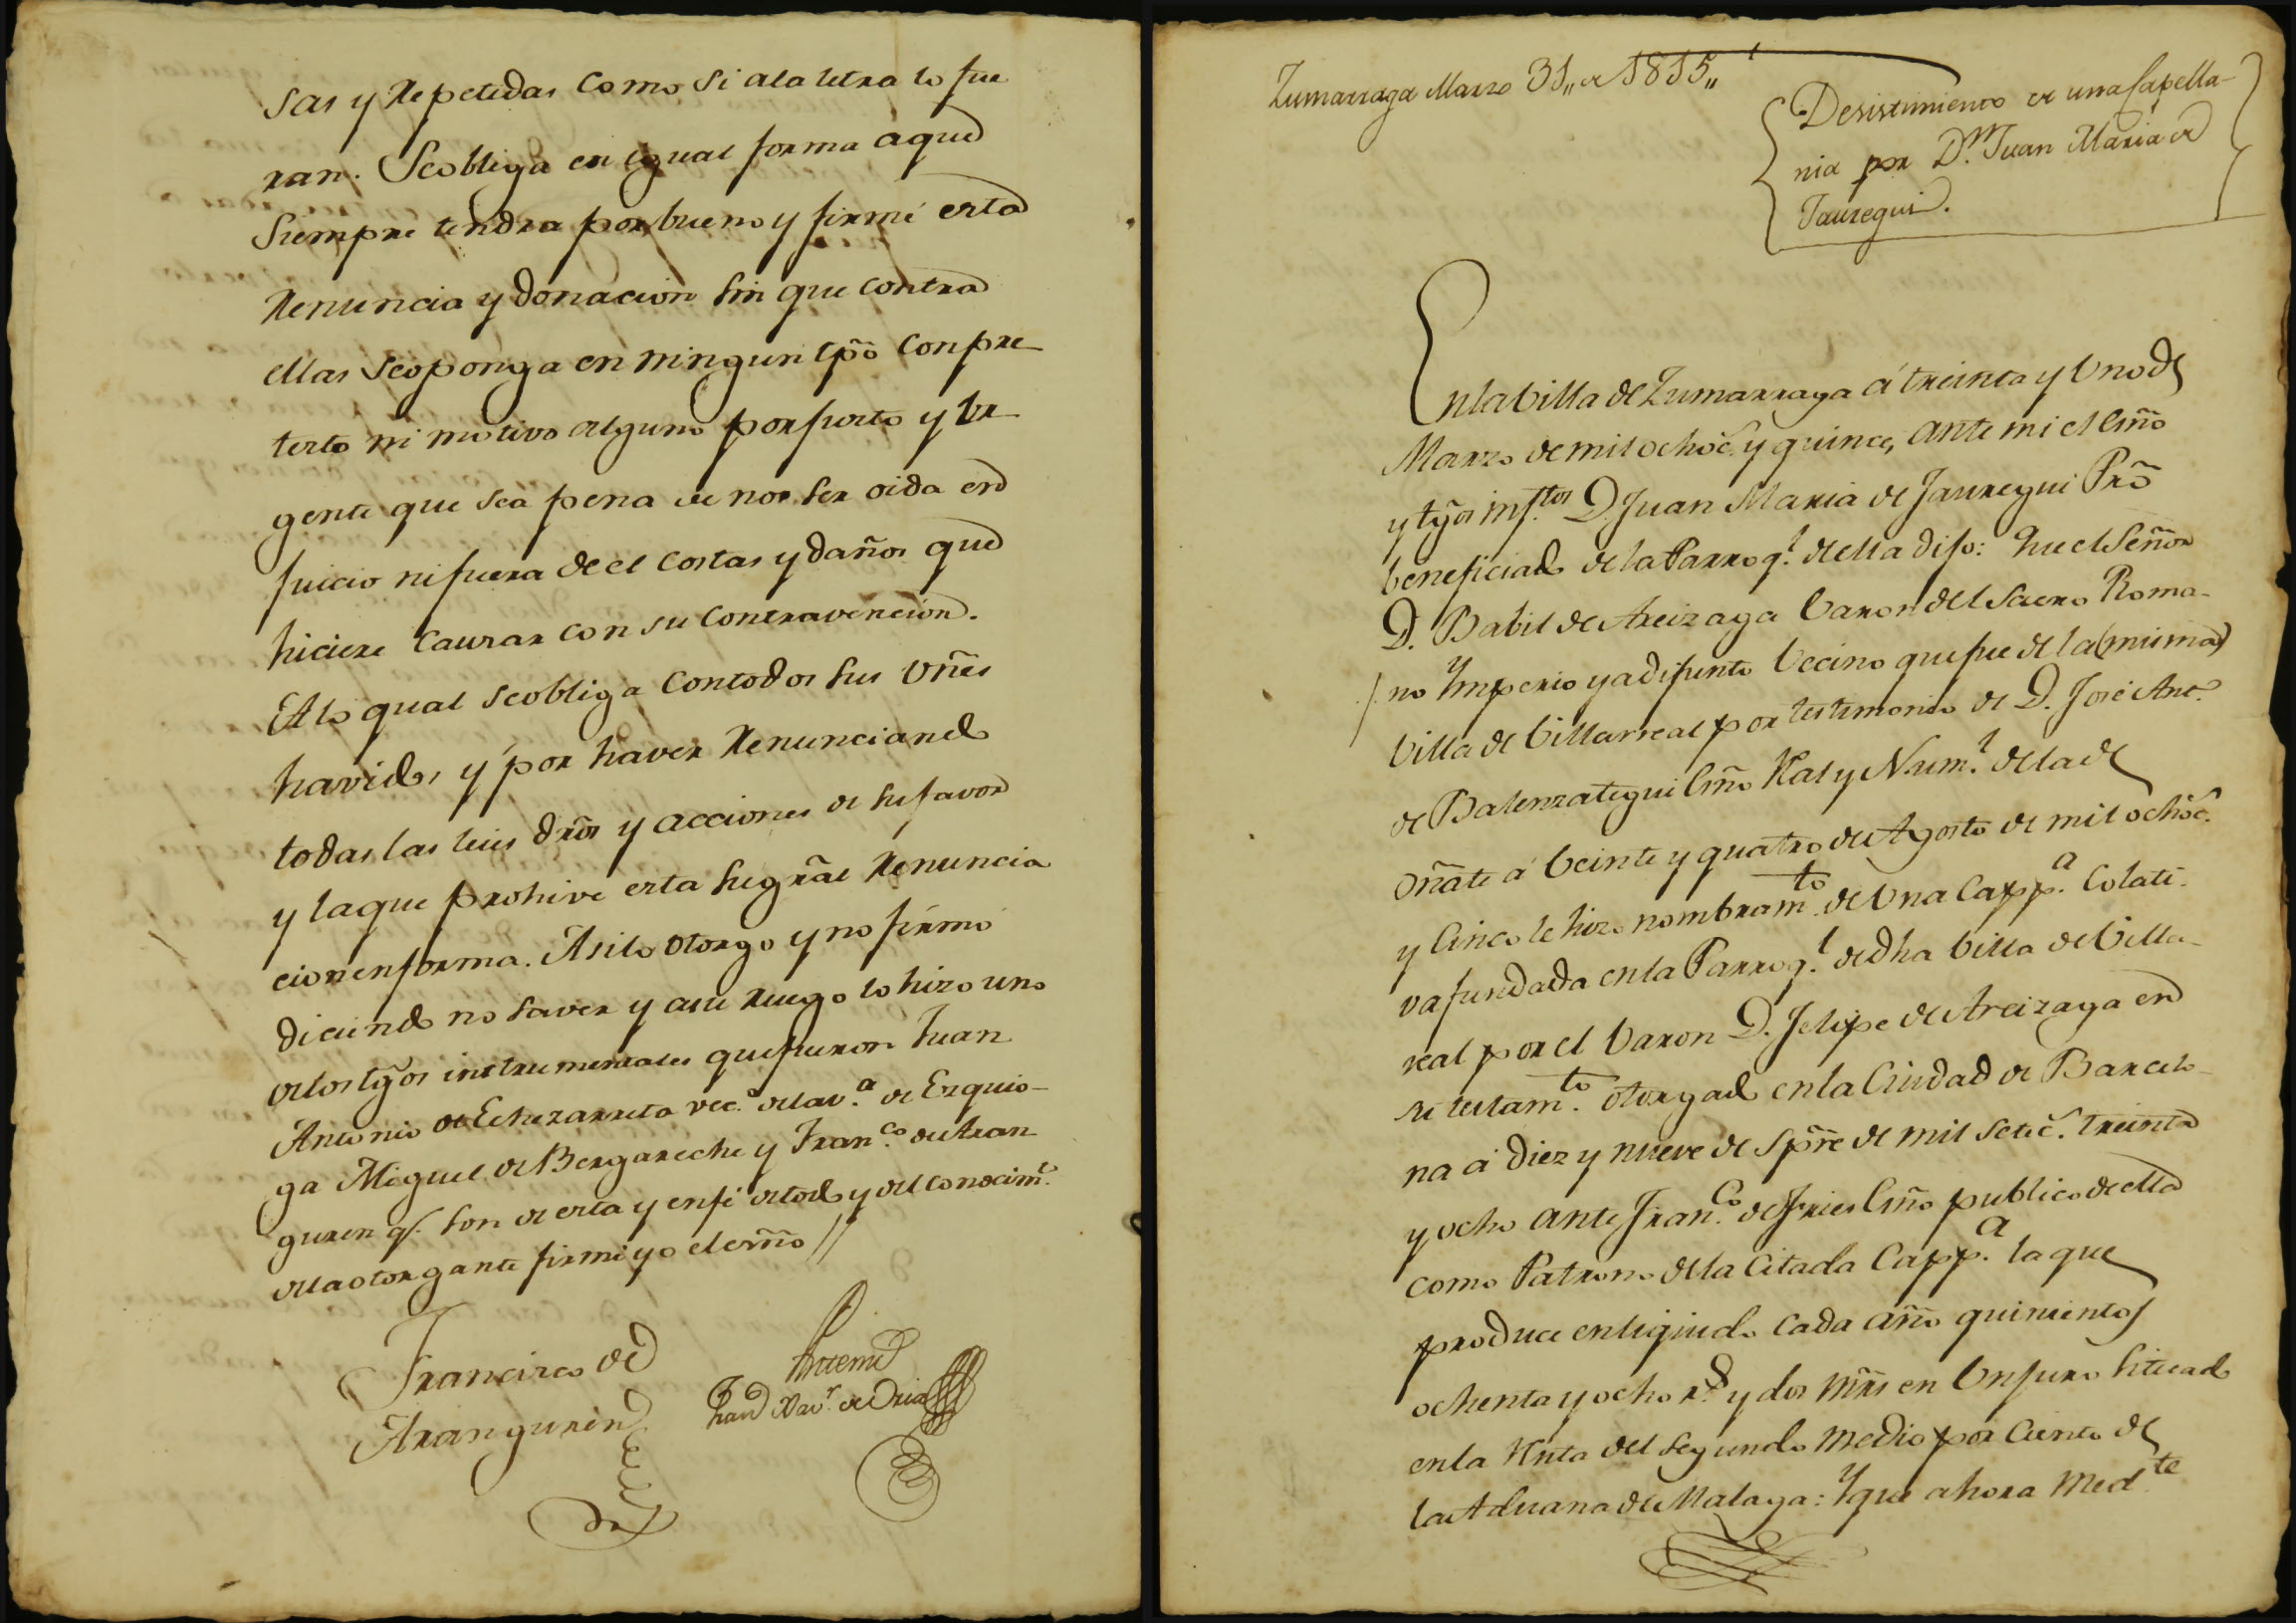 sas y Repetidas como si ala letra lo fue
ran. Seobliga en igual forma aque
Siempre tendra por bueno y firme esta
Renuncia y donacion sin que contra
ellas seoponga en ningun tpõ con pre
testo ni motivo alguno por justo y Ur
gente que sea pena de no ser oida en
juicio ni fuera de el costas y daños que
hiciere causar con su contravencion.
Alo qual seobliga con todos sus vñes
havidos y por haver Renunciando
todas las leies drõs y acciones de su favor
y la que prohive esta su grãl Renuncia
cion en forma. Asi lo otorgo y no firmo
diciendo no saver y asu ruego lo hizo uno
delos tgõs instrumentales que fueron Juan
Antonio de Echezarreta vec.º dela v.ª de Ezquio-
ga Miguel de Bergareche y Fran.co de Aran
guren q.e son de esta y en fe de todo y del conocim.to
dela otorgante firme yo el esrño //
Francisco de
Aranguren
Antemi
Zumarraga Marzo 31,, de 1815,,
Desistimiento de una Capella-
nia por D.n Juan Maria de
Jauregui.
En la Villa de Zumarraga á treinta y Uno de
Marzo de mil ochoc.s y quince, ante mi el Esñõ
y tgõs insf.tos D. Juan Maria de Jauregui Prõ
beneficiado de la Parroq.l de ella dijo: Que el Señor
D. Babil de Areizaga Varon del Sacro Roma-
no Ymperio ya difunto Vecino que fue de la (misma)
Villa de Villarreal por testimonio de D. José Ant.º
de Balenzategui Esñõ Ral y Num.l dela de
Oñate á Veinte y quatro de Agosto de mil ochoc.s
y Cinco le hizo nombram.to de Una Capp.a Colati-
va fundada en la Parroq.l de dha Villa de Villa-
real por el Varon D. Felipe de Areizaga en
su testam.to otorgado en la Ciudad de Barcelo-
na á diez y nueve de Spr̃e de mil setec.s treinta
y ocho ante Fran.co de Fries Esñõ publico de ella
como Patrono de la Citada Capp.a la que
produce en liquido cada año quinientos
ochenta y ocho r.s y dos mr̃s en Un juro Situado
en la Renta del Segundo medio por Ciento de
la Aduana de Malaga: Y que ahora Med.te